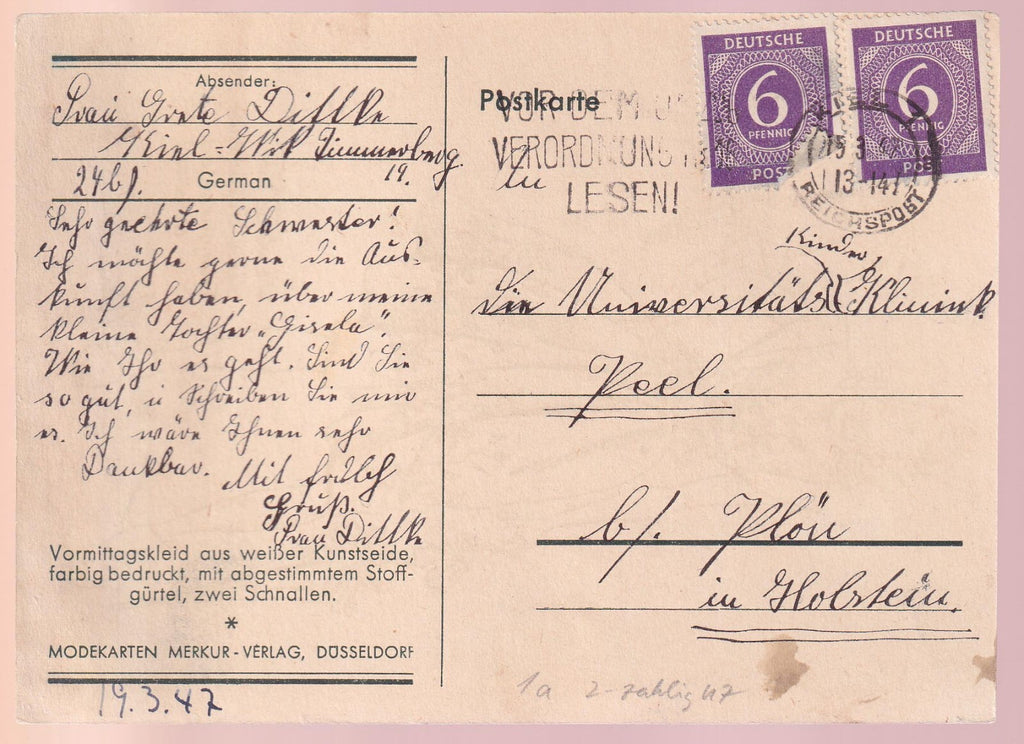 Absender:
Frau Grete Dittke
Kiel-Wik Zimmerberg.
24b). German 19.
Sehr geehrte Schwester!
Ich möchte gerne die Aus-
kunft haben, über meine
kleine Tochter „Gisela".
Wie Ihr es geht. Sind Sie
so gut, u Schreiben Sie mir
es. Ich wäre Ihnen sehr
Dankbar. Mit
Gruß.
Frau Dittke
Vormittagskleid aus weißer Kunstseide,
farbig bedruckt, mit abgestimmtem Stoff-
gürtel, zwei Schnallen.
*
MODEKARTEN MERKUR-VERLAG, DÜSSELDORF
19.3.47
Postkarte
VOR DEM
VERORDNUNG
LESEN!
DEUTSCHE
6
PFENNIG
POST
DEUTSCHE
6
PFENNIG
POST
13-14
REICHSPOST
An
Kinder
die Universitäts Klinink.
Peel.
b/. Plön
in Holstein.
1a 2-zahlig 47